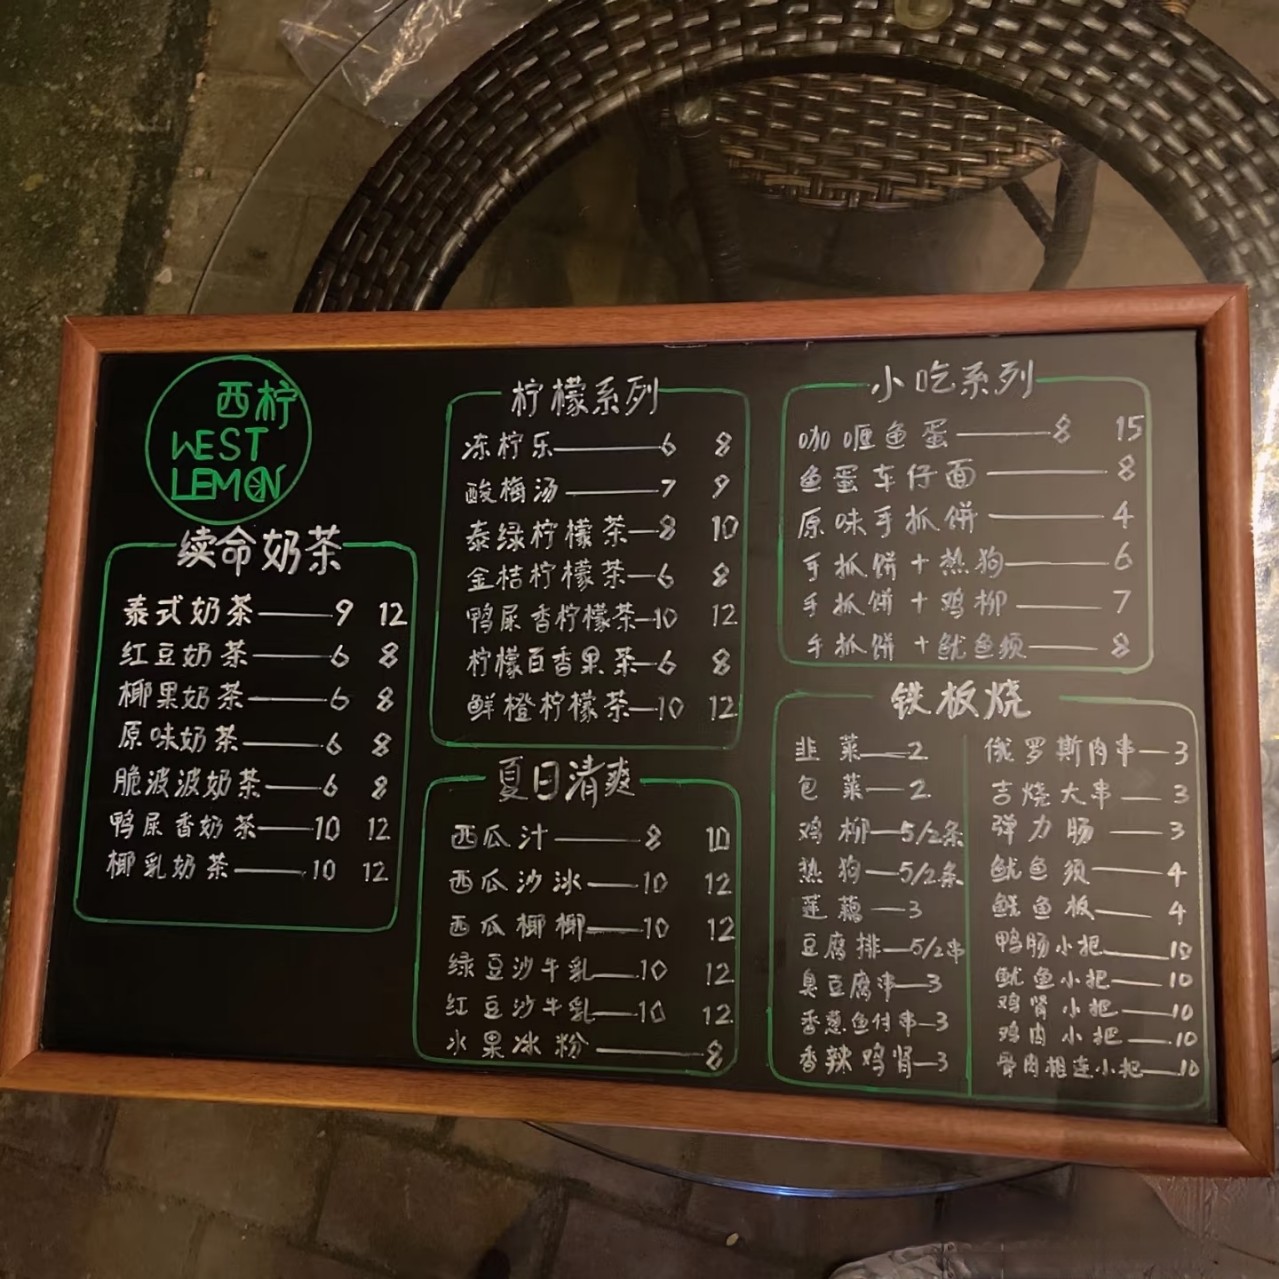 西柠
WEST
LEMON
续命奶茶
泰式奶茶——9 12
红豆奶茶——6 8
椰果奶茶——6 8
原味奶茶——6 8
脆波波奶茶——6 8
鸭屎香奶茶——10 12
椰乳奶茶——10 12
柠檬系列
冻柠乐——6 8
酸梅汤——7 9
泰绿柠檬茶—8 10
金桔柠檬茶—6 8
鸭屎香柠檬茶—10 12
柠檬百香果茶—6 8
鲜橙柠檬茶—10 12
夏日清爽
西瓜汁——8 10
西瓜沙冰——10 12
西瓜椰椰——10 12
绿豆沙牛乳——10 12
红豆沙牛乳——10 12
水果冰粉——8
小吃系列
咖喱鱼蛋——8 15
鱼蛋车仔面——8
原味手抓饼——4
手抓饼+热狗——6
手抓饼+鸡柳——7
手抓饼+鱿鱼须——8
铁板烧
韭菜——2
包菜——2
鸡柳—5/2条
热狗—5/2条
莲藕—3
豆腐排—5/2串
臭豆腐串—3
香葱鱼付串—3
香辣鸡肾—3
俄罗斯肉串—3
吉烧大串—3
弹力肠——3
鱿鱼须——4
鱿鱼板——4
鸭肠小把——10
鱿鱼小把——10
鸡肾小把——10
鸡肉小把——10
骨肉相连小把——10